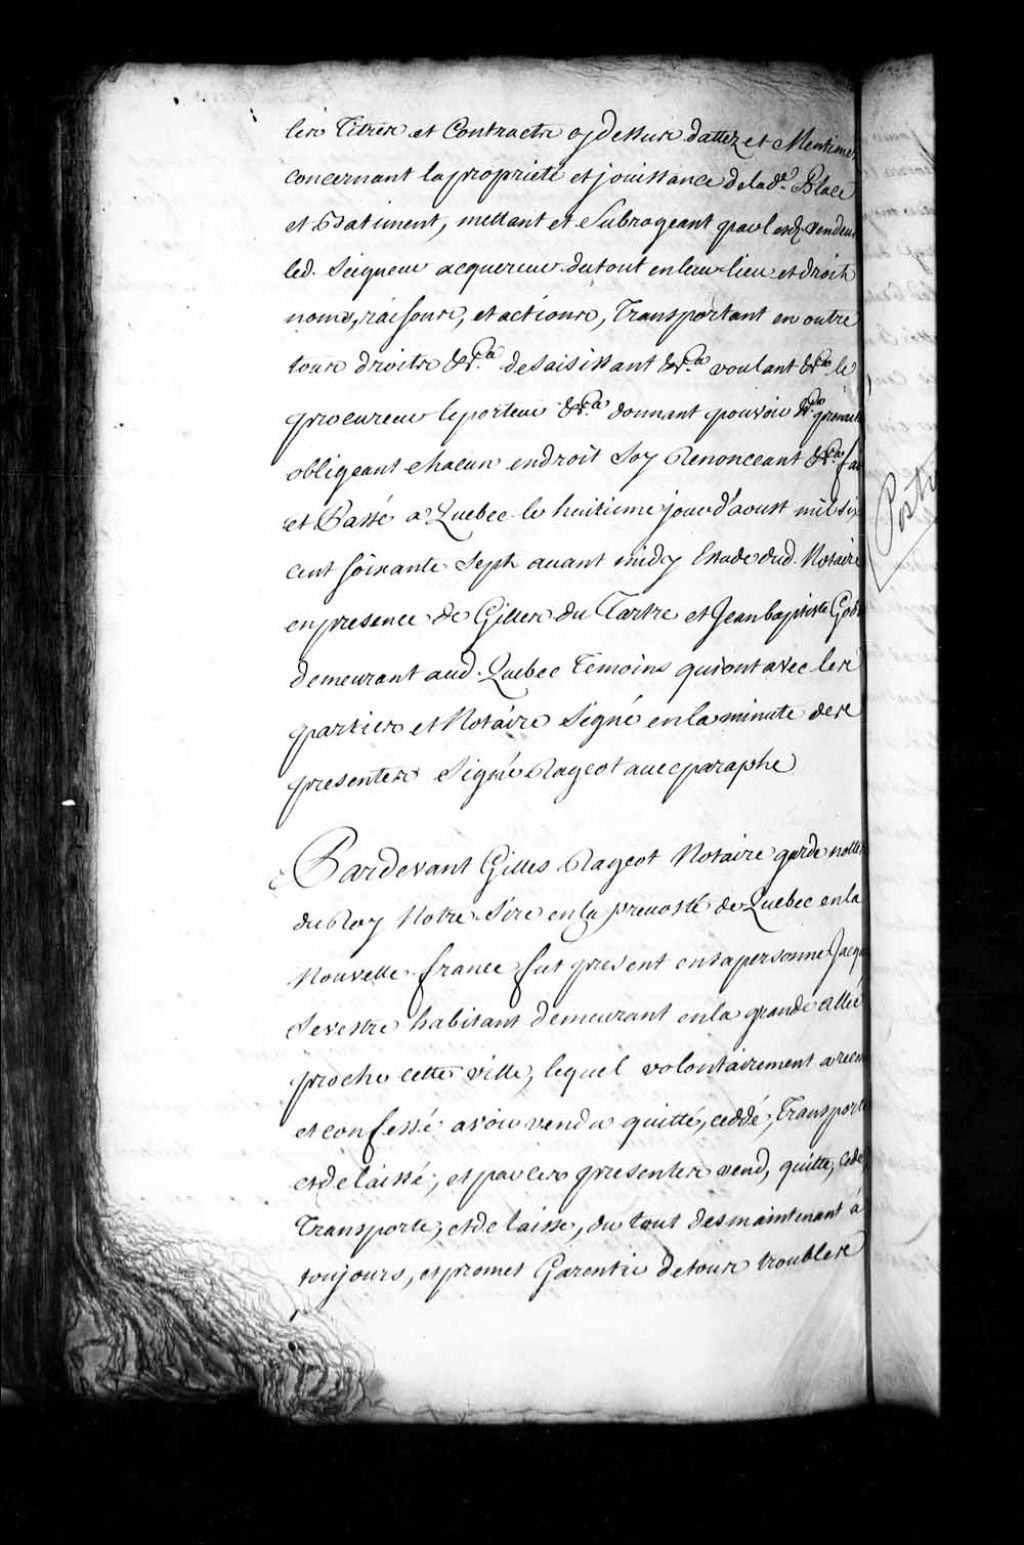 les Titres et Contracts cy dessus dattez et Mentionnez
concernant la proprieté et jouissance de lad.e Place
et Batiment, mettant et Subrogeant par lesd. vendeurs
led. Seigneur acquereur du tout en leur lieu et droits
noms, raisons, et actions, Transportant en outre
tous droits &c.a desaisissant &c.a voulant &c.a le
procureur le porteur &c.a donnant pouvoir &c.a promett
obligeant chacun endroit Soy Renonceant &c.a fai
et Passé a Quebec le huitieme jour d'aoust mil six
cent soixante Sept avant midy Estude dud. Notaire
en presence de Gilles du Tartre et Jean baptiste
demeurant aud. Quebec Temoins qui ont avec les
parties et Notaire Signé en la minute des
presentes Signé Rageot avec paraphe
Pardevant Gilles Rageot Notaire garde notte
du Roy Notre Sire en la prevosté de Quebec en la
Nouvelle france fut present en sa personne Jacq
Sevestre habitant demeurant en la grande allée
proche cette ville, lequel volontairement a recon
et confessé avoir vendu quitté, ceddé, Transporté
et delaissé, et par ces presentes vend, quitte, cede
Transporte, et delaisse, du tout des maintenant à
toujours, et promet Garentir de tous troubles
Post